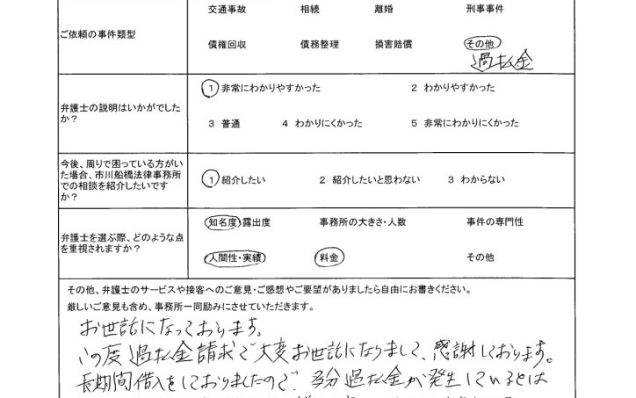 交通事故 相続 離婚 刑事事件
ご依頼の事件類型
債権回収 債務整理 損害賠償 その他
過払金
1 非常にわかりやすかった 2 わかりやすかった
弁護士の説明はいかがでした
か?
3 普通 4 わかりにくかった 5 非常にわかりにくかった
今後、周りで困っている方がい
た場合、市川船橋法律事務所
での相談を紹介したいです
か?
1 紹介したい 2 紹介したいと思わない 3 わからない
知名度・露出度 事務所の大きさ・人数 事件の専門性
弁護士を選ぶ際、どのような点
を重視されますか?
人間性・実績 料金 その他
その他、弁護士のサービスや接客へのご意見・ご感想やご要望がありましたら自由にお書きください。
厳しいご意見も含め、事務所一同励みにさせていただきます。
お世話になっております。
この度過払金請求で大変お世話になりまして、感謝しております。
長期間借入をしておりましたので、多分過払金が発生しているとは